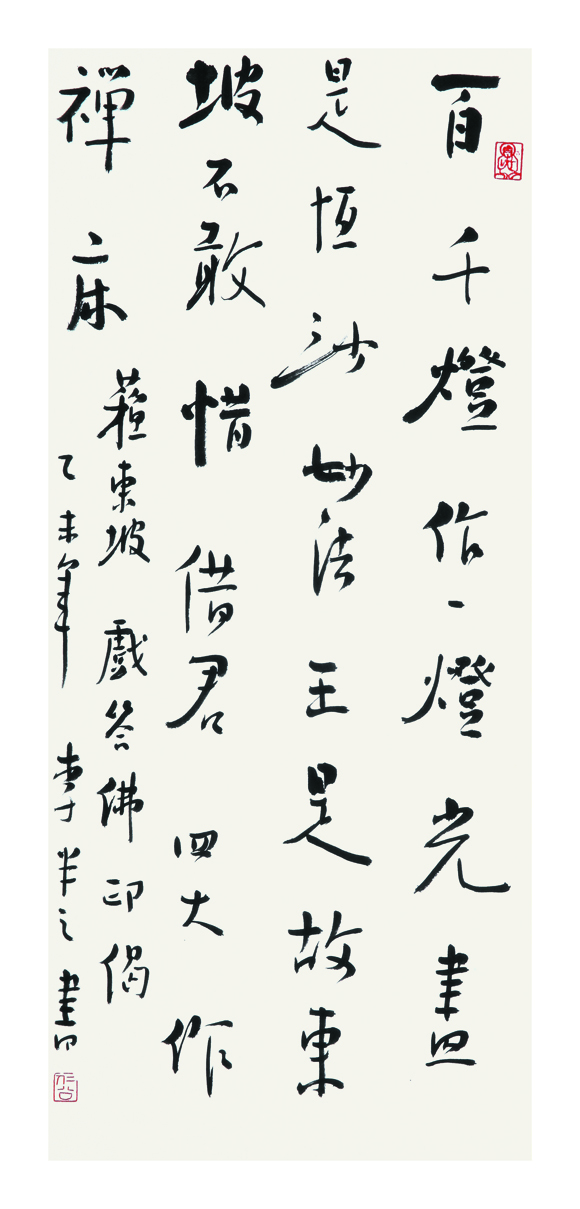 百千燈作一燈光盡
是恒沙妙法王是故東
坡不敢惜借君四大作
禪床
蘇東坡 戲答佛印偈
乙未年 半之書